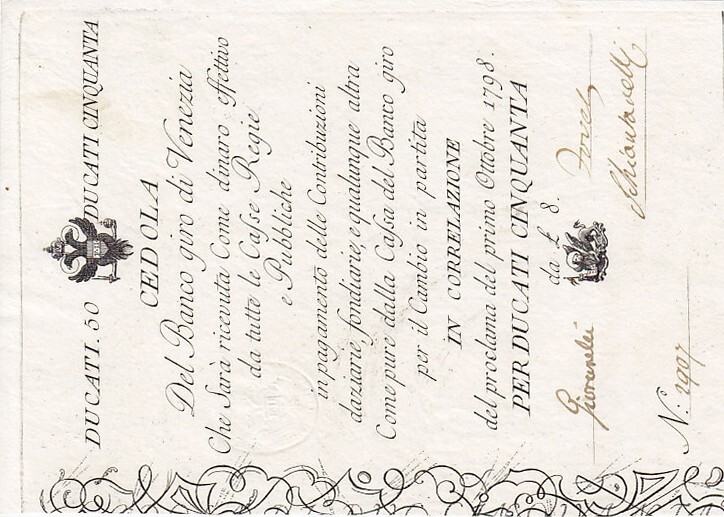 DUCATI. 50 DUCATI CINQUANTA
CEDOLA
Del Banco giro di Venezia
Che Sara ricevuta Come dinaro effettivo
da tutte le Casse Regie
e Pubbliche
in pagamento delle Contribuzioni
daziarie, fondiarie, e qualunque altra
Come pure dalla Cassa del Banco giro
per il Cambio in partita
IN CORRELAZIONE
del proclama del primo Ottobre 1798.
PER DUCATI CINQUANTA
da £ 8.
N. 2997